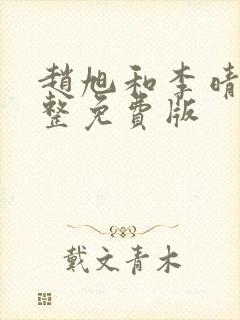 趙旭和李晴
整免費版
戴文青木